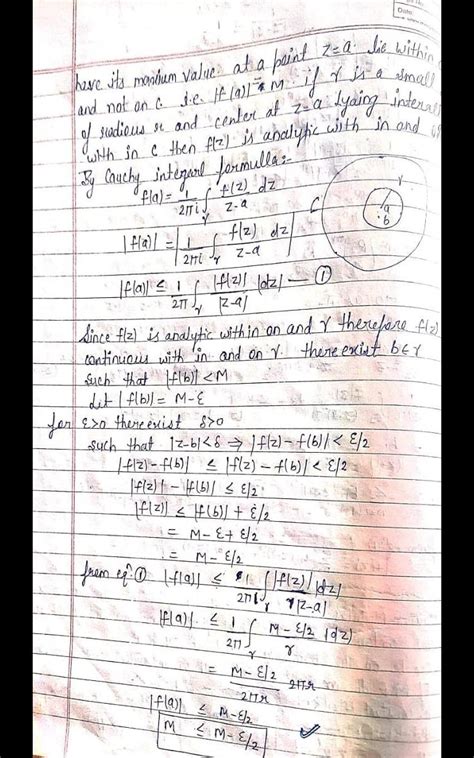 Date:
have its maximum value at a point z=a lie within
and not on c i.e. |f(a)| = M if r is a small
of radious r and center at z=a lyaing interal
with in c then f(z) is analytic with in and
By Cauchy integral formulla:-
f(a) = 1/2πi ∫γ f(z)/z-a dz
|f(a)| = |1/2πi ∫γ f(z)/z-a dz|
C
γ
a
b
|f(a)| ≤ 1/2π ∫γ |f(z)|/|z-a| |dz| — ①
Since f(z) is analytic within on and γ therefore f(z)
continuous with in and on γ. there exist b∈γ
such that |f(b)| < M
Let |f(b)| = M-ε
for ε>0 there exist δ>0
such that |z-b|<δ ⇒ |f(z)-f(b)| < ε/2
|f(z)-f(b)| ≤ |f(z)-f(b)| < ε/2
|f(z)| - |f(b)| ≤ ε/2
|f(z)| ≤ |f(b)| + ε/2
= M-ε+ε/2
= M-ε/2
from eqⁿ ① |f(a)| ≤ 1/2π ∫γ |f(z)|/|z-a| |dz|
|f(a)| ≤ 1/2π ∫γ M-ε/2 /r |dz|
= M-ε/2 /2πr 2πr
|f(a)| ≤ M-ε/2
M ≤ M-ε/2